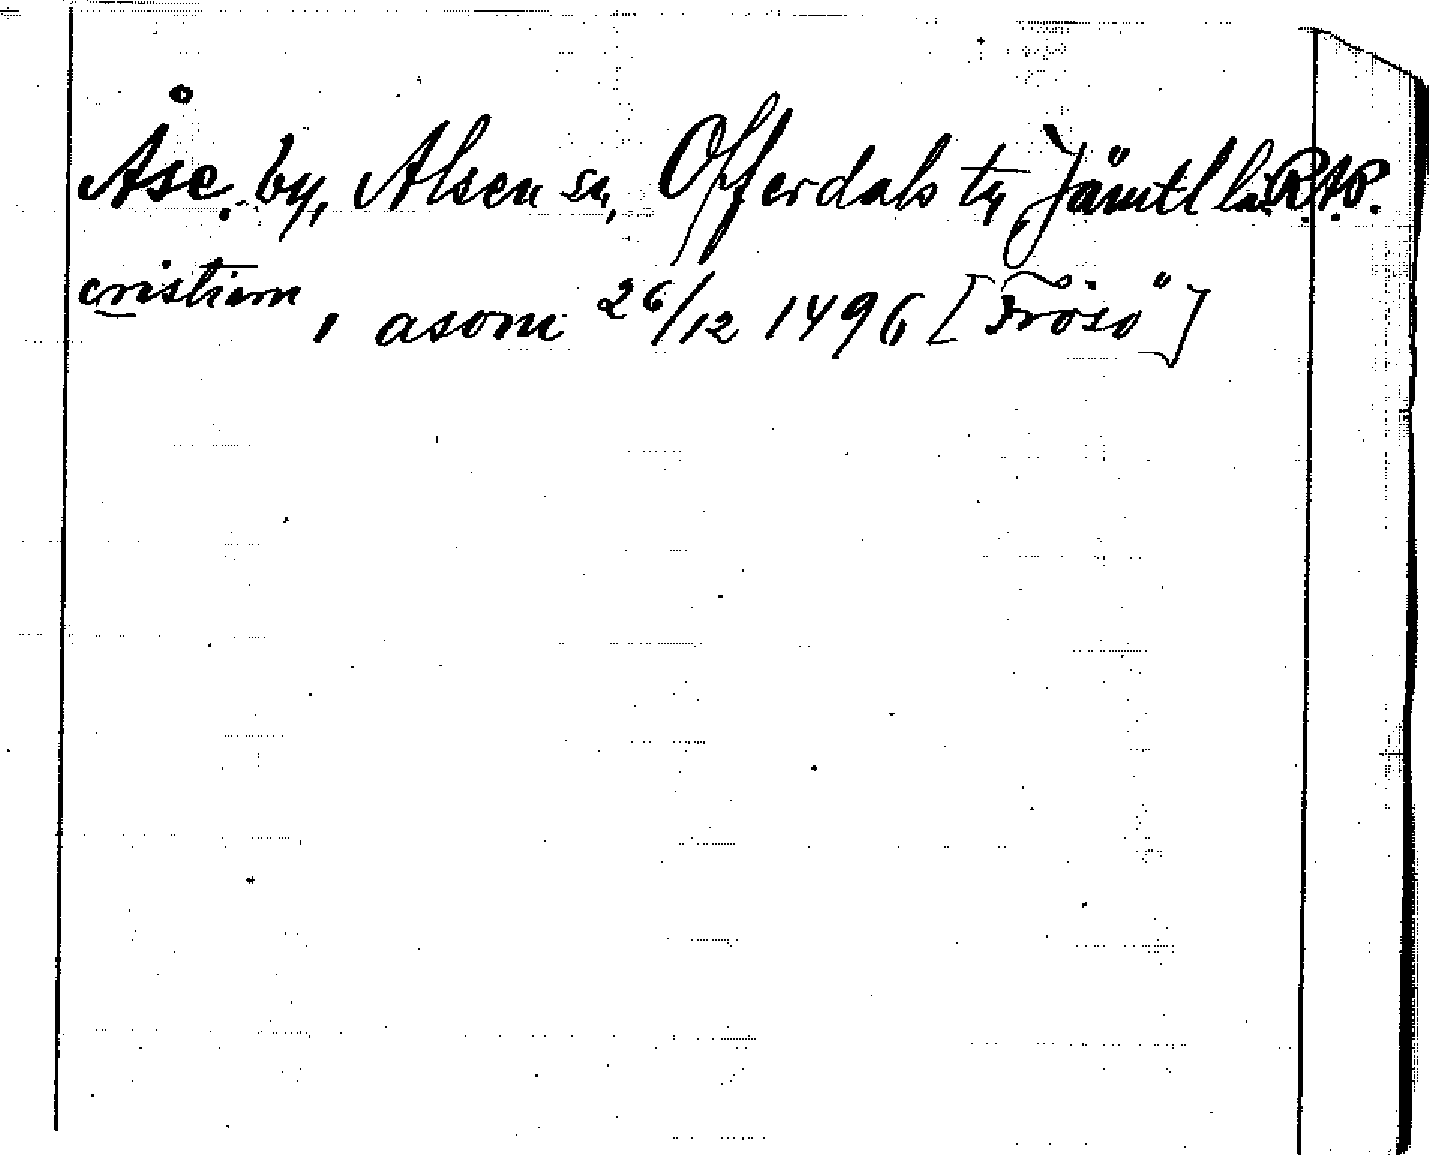 Åse. by, Alsen sn, Offerdals tg Jämtl län. RAP.
cristiern, i asom 26/12 1496 [Frösö]